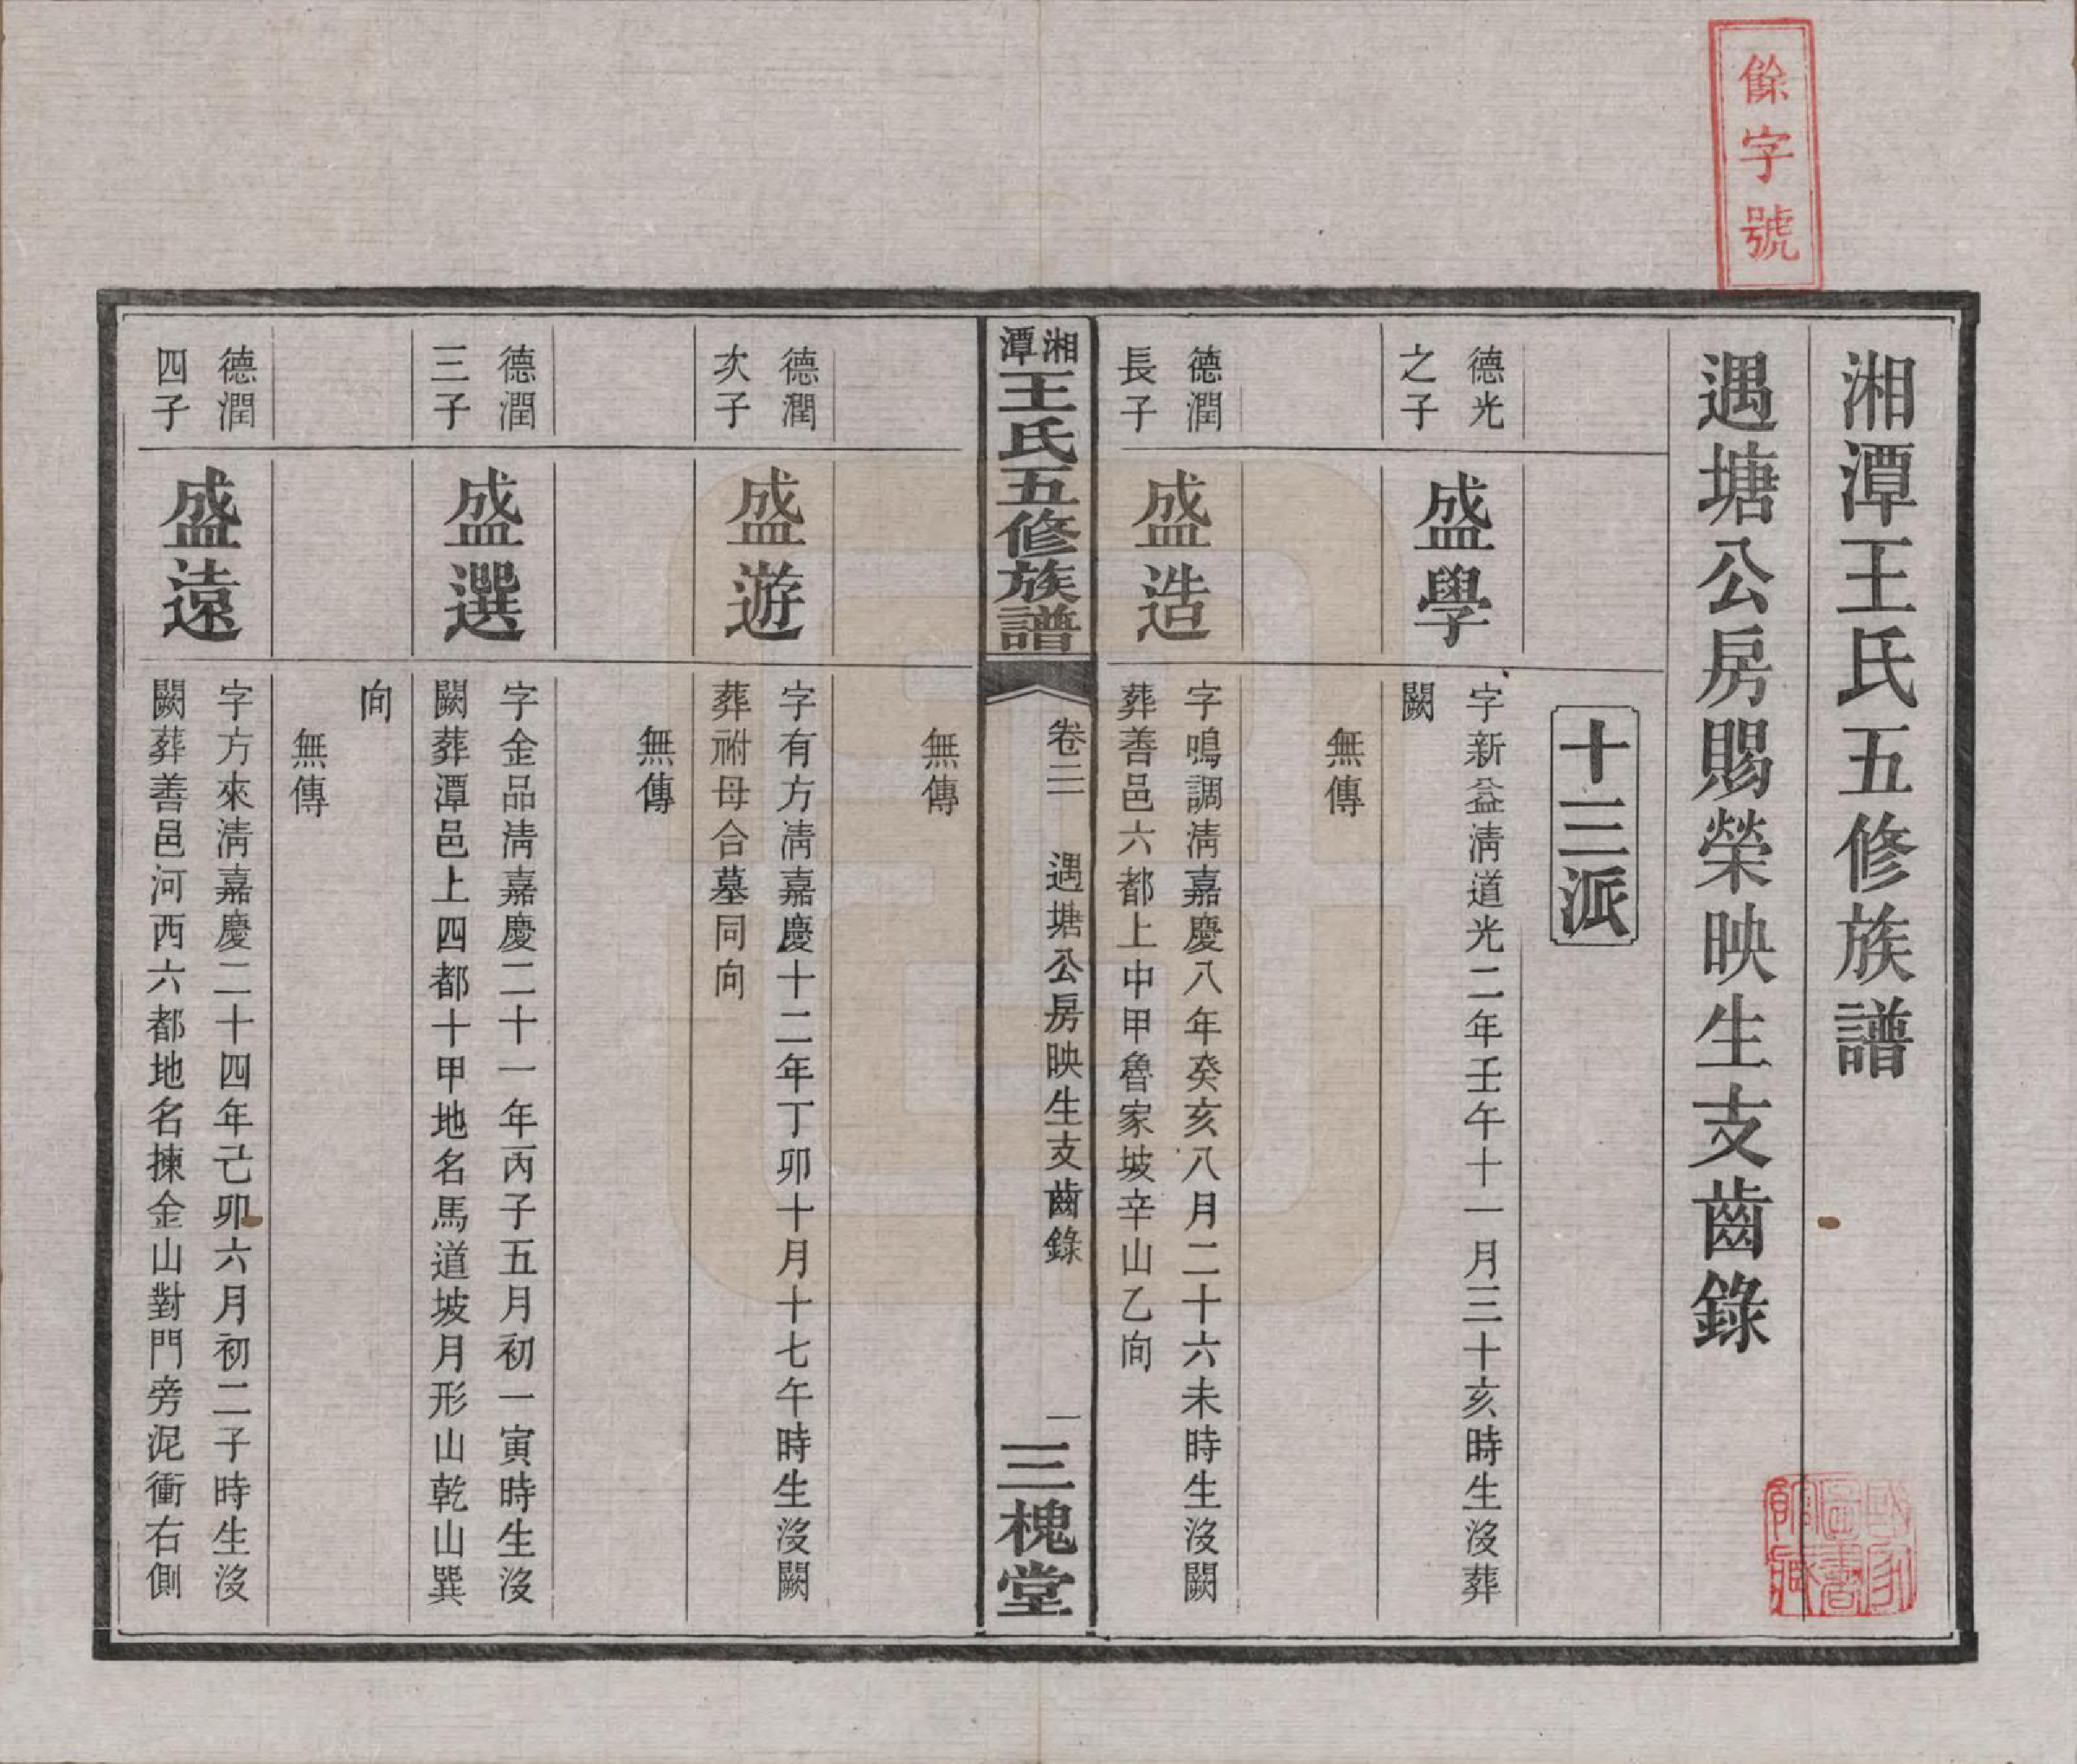 餘字號
湘潭王氏五修族譜
遇塘公房賜榮映生支齒錄
十三派
德光
之子
盛學
字新益淸道光二年壬午十一月三十亥時生沒葬
闕
無傳
德潤
長子
盛造
字鳴調淸嘉慶八年癸亥八月二十六未時生沒闕
葬善邑六都上中甲魯家坡辛山乙向
湘潭王氏五修族譜
卷二 遇塘公房映生支齒錄
一
三槐堂
無傳
德潤
次子
盛遊
字有方淸嘉慶十二年丁卯十月十七午時生沒闕
葬祔母合墓同向
無傳
德潤
三子
盛選
字金品淸嘉慶二十一年丙子五月初一寅時生沒
闕葬潭邑上四都十甲地名馬道坡月形山乾山巽
向
無傳
德潤
四子
盛遠
字方來淸嘉慶二十四年己卯六月初二子時生沒
闕葬善邑河西六都地名揀金山對門旁泥衝右側
國家
圖書
館藏